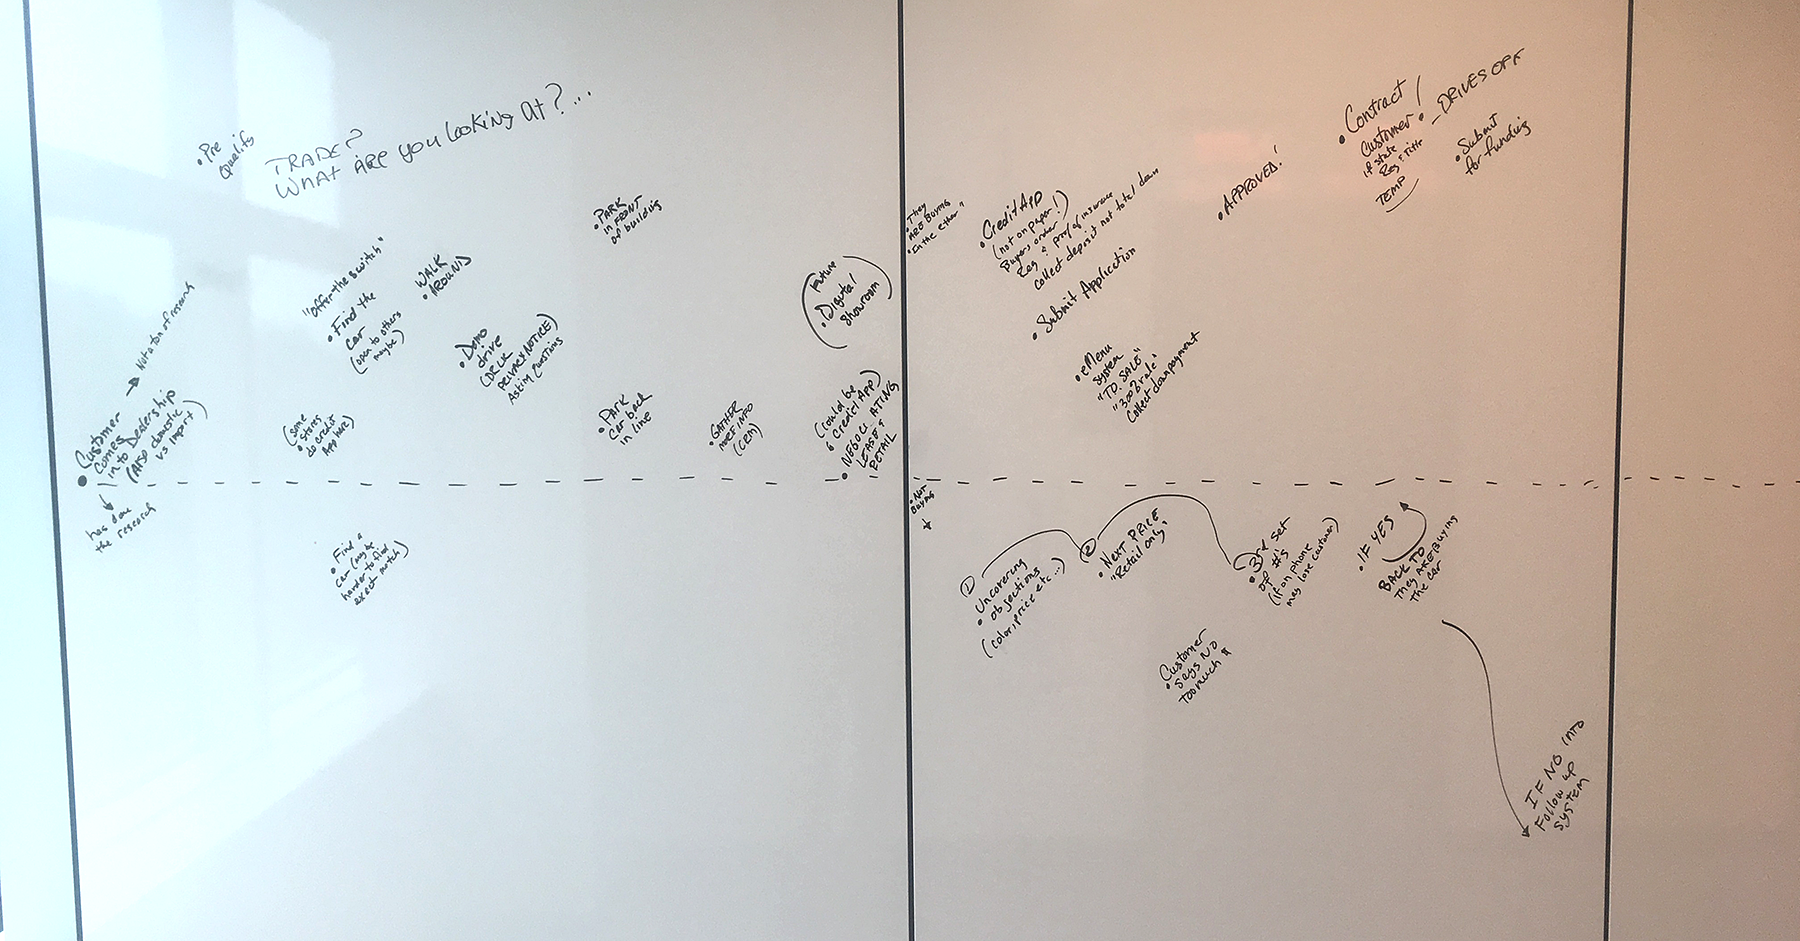 • Pre
Qualify
TRADE?
WHAT ARE YOU LOOKING At?...
"offer-the switch"
• Find the
car
(open to others
maybe)
WALK
• AROUND
• Demo
drive
PRIVACY NOTICE)
Asking questions
• PARK
in FRONT
of building
→ Not a ton of research
• Customer
comes
in to Dealership
(Also domestic
vs import)
↓
has done
the research
(some
• stores
do credit
App here)
• Find a
car (maybe
harder to find
exact match)
• PARK
car back
in line
• GATHER
more info
(CRM)
(Future
• Digital
showroom)
(could be
a Credit App)
• NEGOCIATING
LEASE &
RETAIL
• They
ARE BUYING
• "In the ether"
• Credit App
(not on paper!)
Buyers order
Reg & proof of insurance
Collect deposit not total down
• Submit Application
• eMenu
system
"TO. SALE"
Collect downpayment
• APPROVED!
• Contract
Customer •
if state
Reg & Title
TEMP
- DRIVES OFF
• Submit
for funding
• Not
Buying
↓
①
Uncovering
• objections
(color, price etc...)
②
• NEXT PRICE
"Retail only"
3rd set
• of #'s
(if on phone
may lose customer)
Customer
• says NO
too much $
• IF YES
BACK TO
they ARE Buying
the car
IF NO INTO
Follow up
system